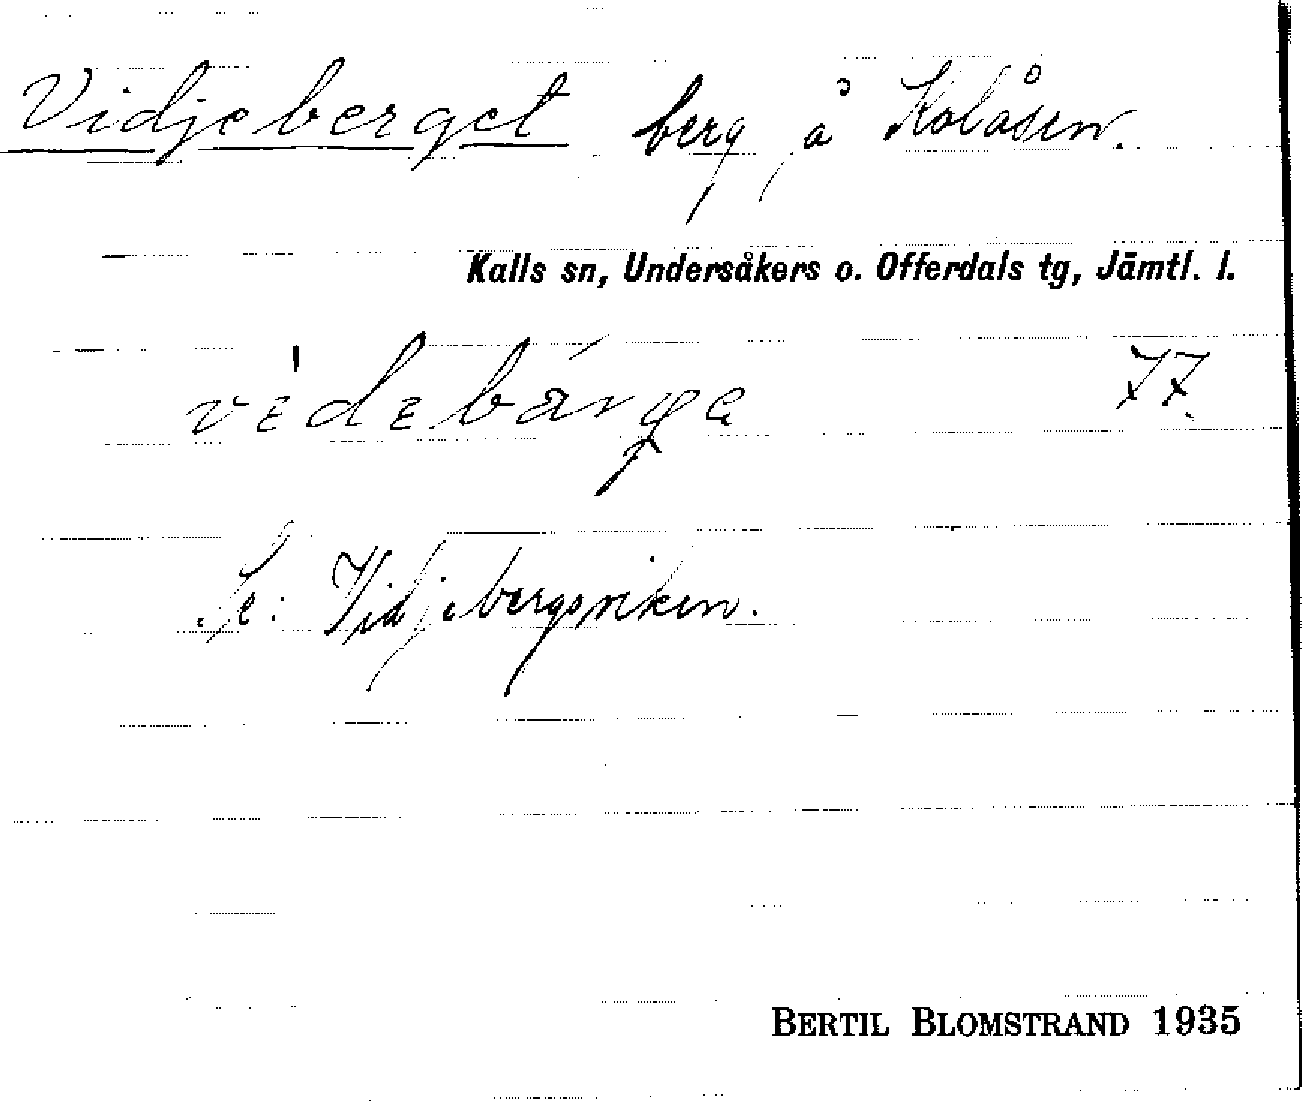 Vidjeberget berg, å Kolåsen.
Kalls sn, Undersåkers o. Offerdals tg, Jämtl. l.
vède bárge 77.
Se: Vidjebergsviken.
BERTIL BLOMSTRAND 1935